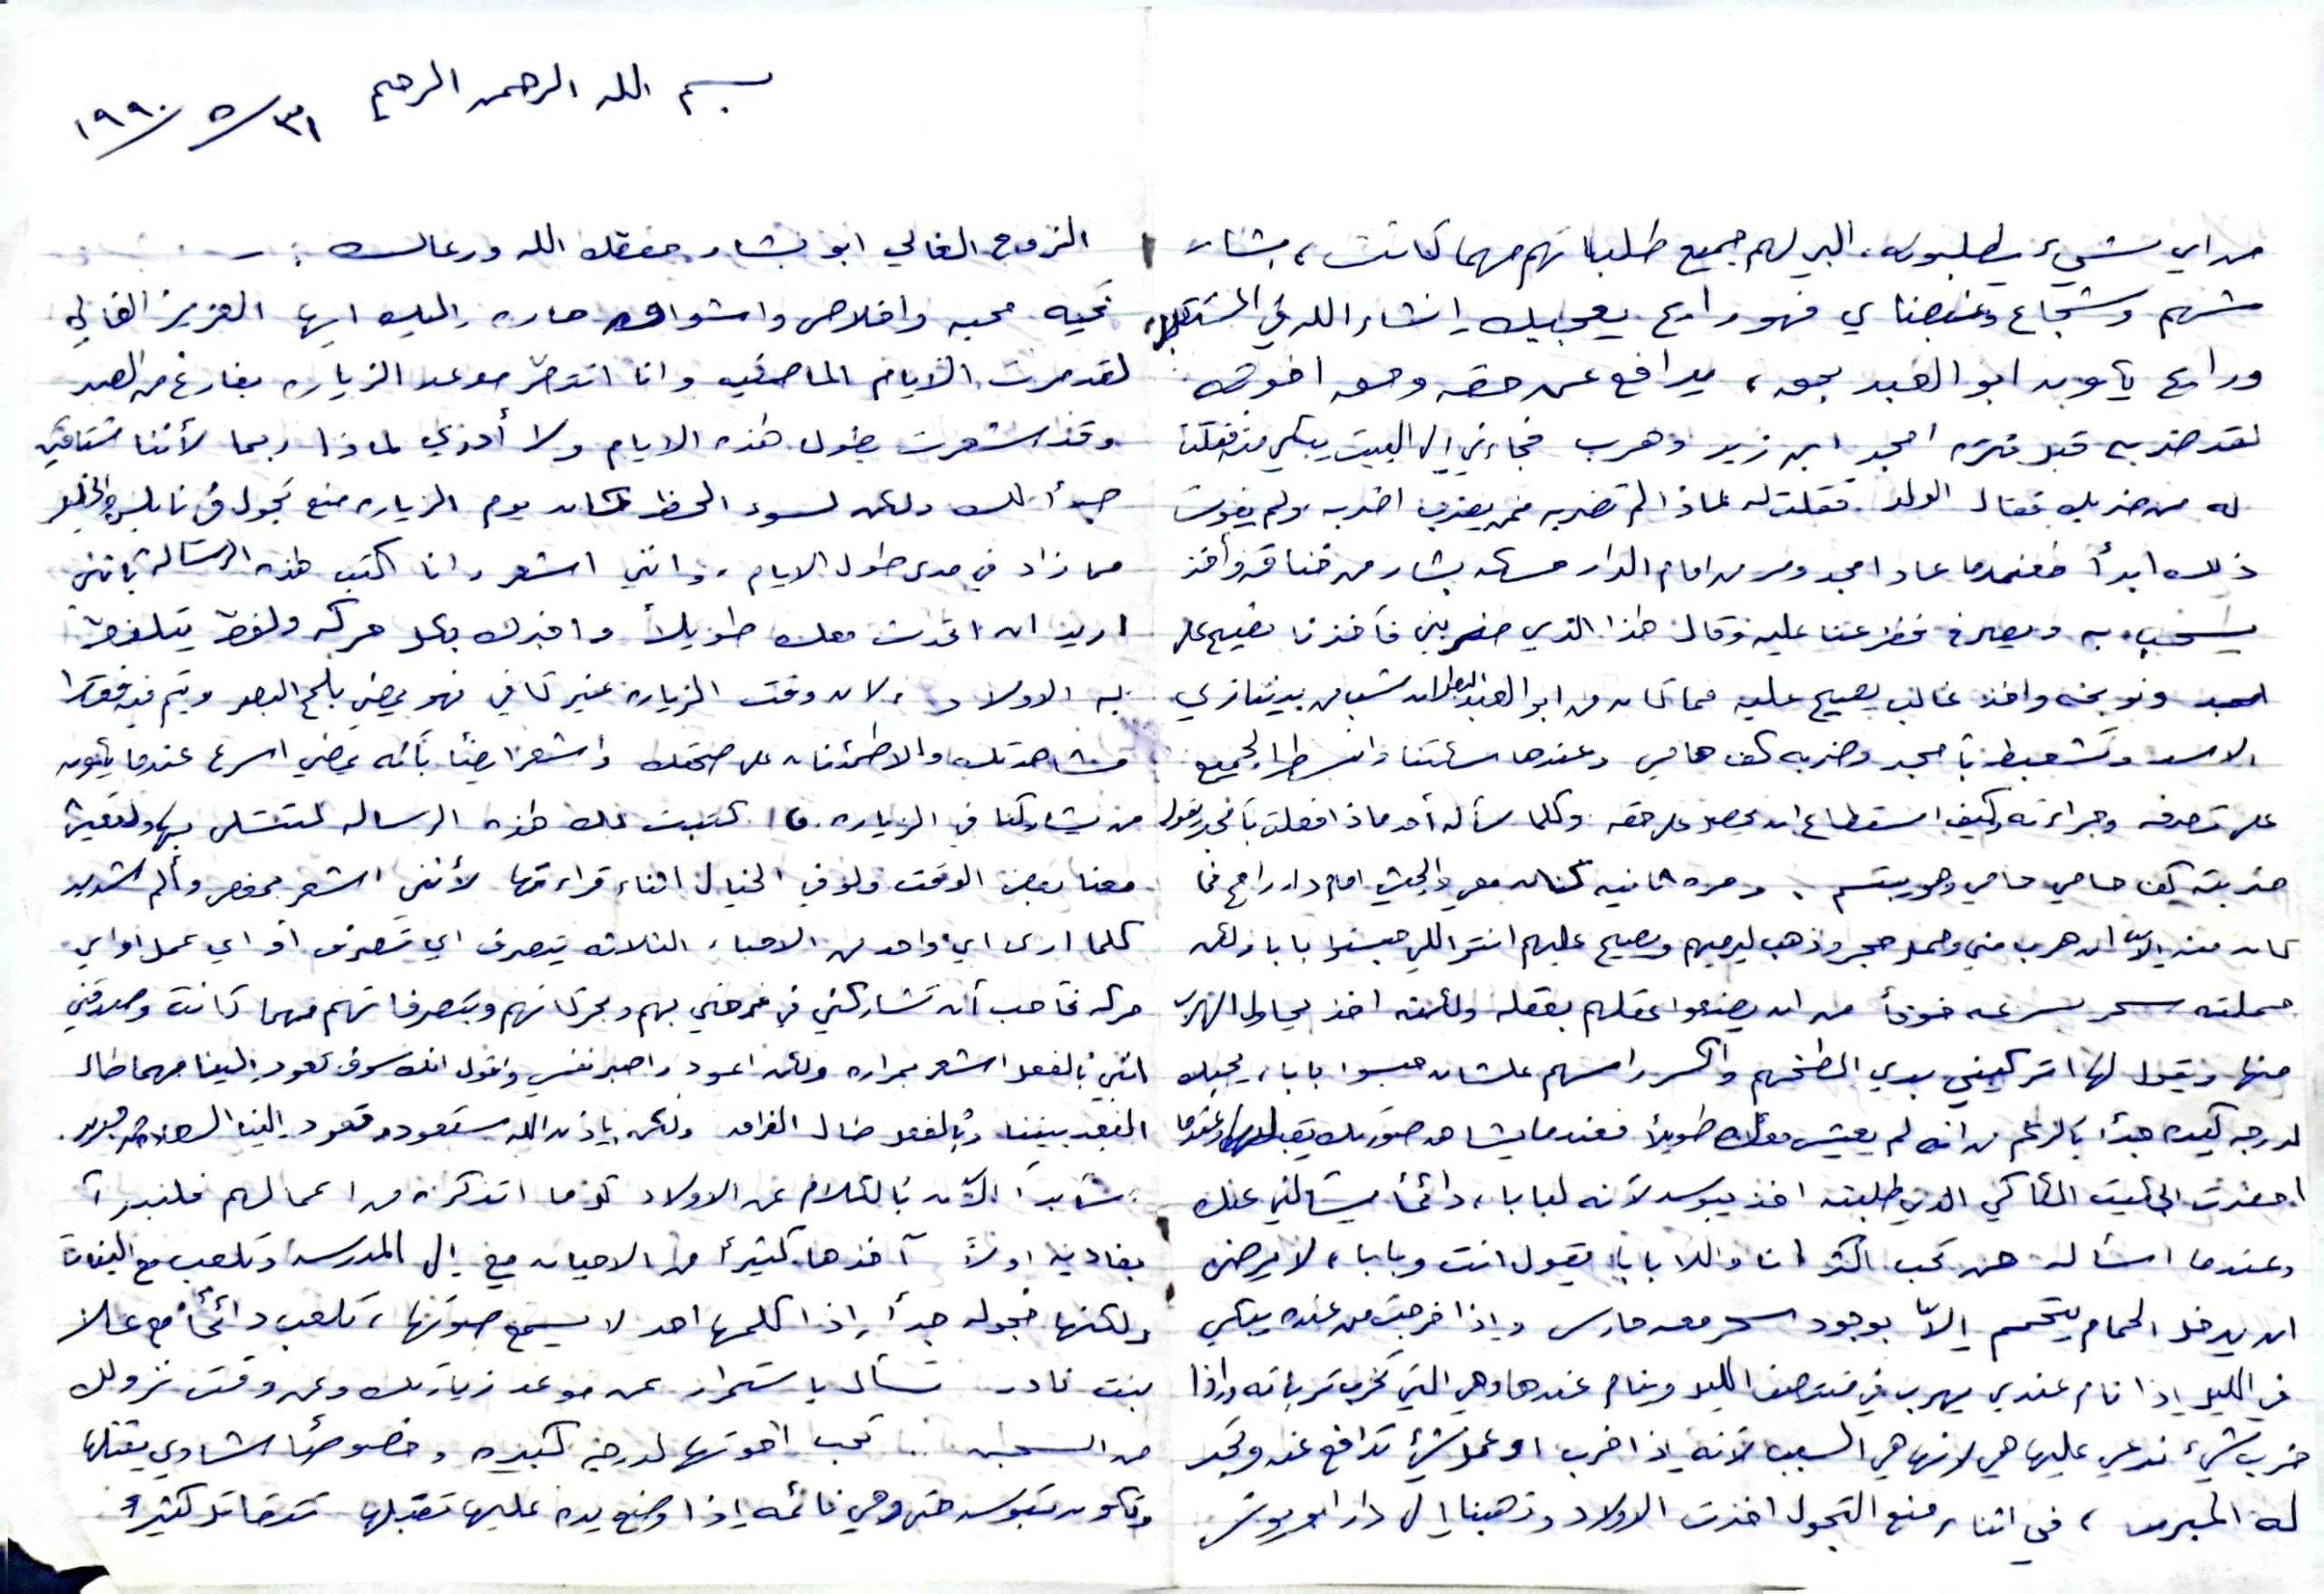 بسم الله الرحمن الرحيم
٣١/٥/١٩٩٠
الزوج الغالي ابو بشار حفظك الله ورعاك :-
تحيه محبه واخلاص واشواق حاره اليك ايها العزيز الغالي
لقد مرت الايام الماضيه وانا انتظر موعد الزياره بفارغ من الصبر
وقد شعرت بطول هذه الايام ولا أدري لماذا ربما لأننا مشتاقين
جداً لك ولكن لسوء الحظ كان يوم الزياره منع تجول في نابلس والخليل
مما زاد في مدى طول الايام، وانني اشعر وانا اكتب هذه الرسالة بأنني
اريد ان اتحدث معك طويلاً واخبرك بكل حركه ولفظ يتلفظ
به الاولاد، لان وقت الزياره غير كافي فهو يمضي بلمح البصر ويتم فيه فقط
مشاهدتك والاطمئنان على صحتك واشعر ايضاً بأنه يمضي اسرع عندما يكون
من يشاركنا في الزياره. كتبت لك هذه الرساله لتتسلى بها ولتعيش
معنا بعض الوقت ولو في الخيال اثناء قراءتها لأنني اشعر بمغص وألم شديد
كلما ارى اي واحد من الاحباء الثلاثه يتصرف اي تصرف او اي عمل او اي
حركه فأحب أن تشاركني في فرحتي بهم وبحركاتهم وبتصرفاتهم مهما كانت وصدقني
انني بالفعل اشعر بمراره ولكن اعود واصبر نفسي واقول انك سوف تعود الينا مهما طال
البعد بيننا وبالفعل طال الفراق ولكن باذن الله ستعود وتعود الينا السعاده من جديد.
سأبدأ الآن بالكلام عن الاولاد كل ما اتذكره من اعمالهم فلنبدأ
بغاديه اولاً آخذها كثيراً من الاحيان معي الى المدرسه وتلعب مع البنات
ولكنها خجوله جداً اذا كلمها احد لا يسمع صوتها، تلعب دائماً مع علا
بنت نادر تسأل باستمرار عن موعد زيارتك وعن وقت نزولك
من السجن .. تحب اخوتها لدرجه كبيره وخصوصاً الشاوي يقتلها
وتكون تبوسه حتى وهي نائمه اذا وضع يده عليها تقبلها تتقاتل كثيراً
من اي شيء يطلبونه، البي لهم جميع طلباتهم مهما كانت، بشار
شهم وشجاع وعنفصاي فهو رايح يعجبك انشاء الله في المستقبل،
ورايح يكون ابو العبد بحق، يدافع عن حقه وحق اخوته
لقد ضربه قبل فتره امجد ابن زيد وهرب فجاءني الى البيت يبكي فقلت
له من ضربك فقال الولد. فقلت له لماذا لم تضربه فمن يضربك اضربه، ولم يفوت
ذلك ابدأ فعندما عاد امجد ومر من امام الدار مسكه بشار من خناقه وأخذ
يسحب به ويصرخ فطلعنا عليه وقال هذا الذي ضربني فأخذنا نصيح على
امجد ونوبخه واخذ غالب يصيح عليه فما كان من ابو العبد البطل الا ان
الاسد وتشعبط بأمجد وضربه كف حامي وعندها سكتنا وانبسط الجميع
على تصرفه وجراءته وكيف استطاع ان يحصل على حقه وكلما سأله أحد ماذا فعلت بأمجد يقول
ضربته كف حامي حامي وهو يبتسم. ومره ثانيه كان معي والجيش امام دار رامح فما
كان منه الا ان هرب مني وحمل حجر وذهب ليرميهم ويصيح عليهم انتو اللي حبستوا بابا ولكن
حملته سحر بسرعه خوفاً من ان يضعوا عقلهم بعقله ولكنه اخذ يحاول الهرب
منها ويقول لها اتركيني بدي الطخهم واكسر راسهم علشان حبسوا بابا، يحبك
لدرجه كبيره جداً بالرغم من انه لم يعيش معك طويلاً فعندما يشاهد صورتك يقبلها وعندما
احضرت الجكيت الكاكي الذي طلبته اخذ يبوسه لأنه لبابا، دائماً يسألني عنك
وعندما اسأله من تحب اكثر انا والا بابا يقول انت وبابا، لا يرضى
ان يدخل الحمام يتحمم الا بوجود سحر معه حارس واذا خرجت من عنده يبكي
في الليل اذا نام عندي يهرب في منتصف الليل وينام عندها وهي التي تخرب تربايته واذا
خرب شيء ندعي عليها هي لانها هي السبب لأنه اذا خرب او عمل شيء تدافع عنه وتجد
له المبررات، في اثناء منع التجول اخذت الاولاد وذهبنا الى دار ابو